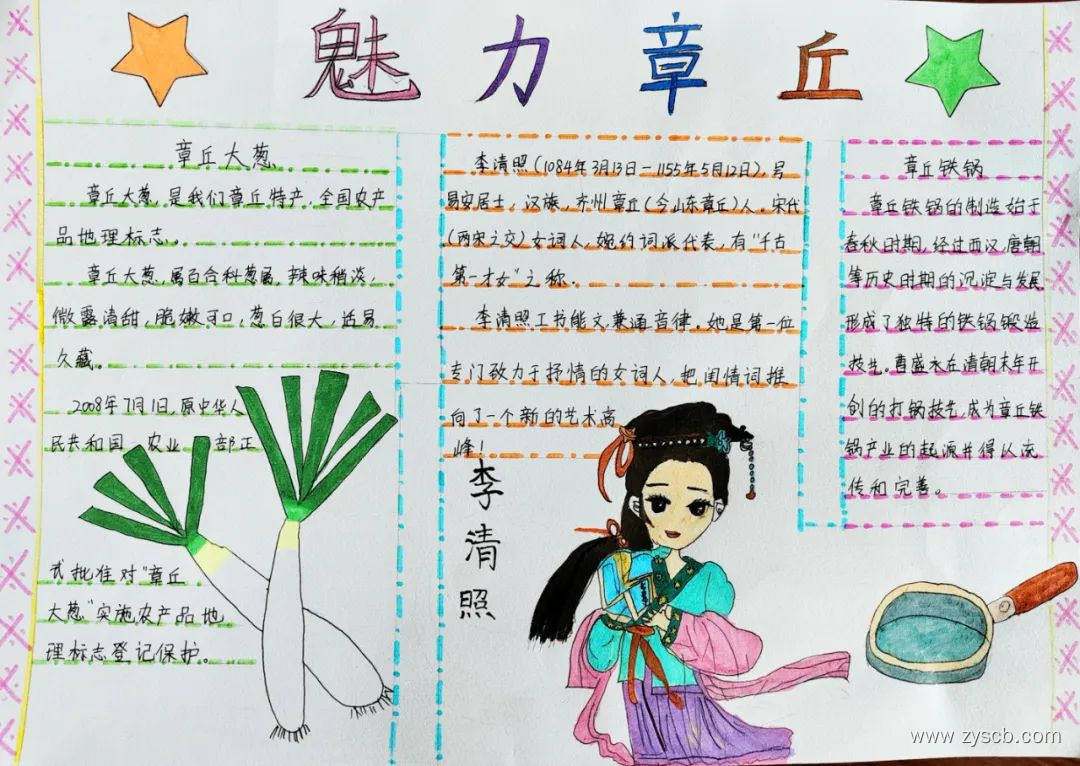 魅力章丘
章丘大葱
章丘大葱,是我们章丘特产,全国农产
品地理标志。
章丘大葱,属百合科葱属,辣味稍淡,
微露清甜,脆嫩可口,葱白很大,适易
久藏。
2008年7月1日,原中华人
民共和国 农业 部正
式批准对"章丘
大葱"实施农产品地
理标志登记保护。
李清照(1084年3月13日—1155年5月12日),号
易安居士,汉族,齐州章丘(今山东章丘)人。宋代
(两宋之交)女词人,婉约词派代表,有"千古
第一才女"之称。
李清照工书能文兼通音律。她是第一位
专门致力于抒情的女词人,把闺情词推
向了一个新的艺术高
峰!
李清照
章丘铁锅
章丘铁锅的制造始于
春秋时期,经过西汉,唐朝
等历史时期的沉淀与发展
形成了独特的铁锅锻造
技艺。曹盛永在清朝末年开
创的打锅技艺成为章丘铁
锅产业的起源并得以流
传和完善。
www.zyscb.com